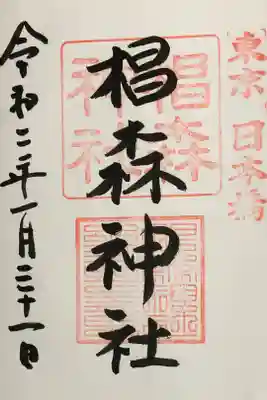 東京 日本橋
椙森神社
椙森神社
令和二年一月三十一日